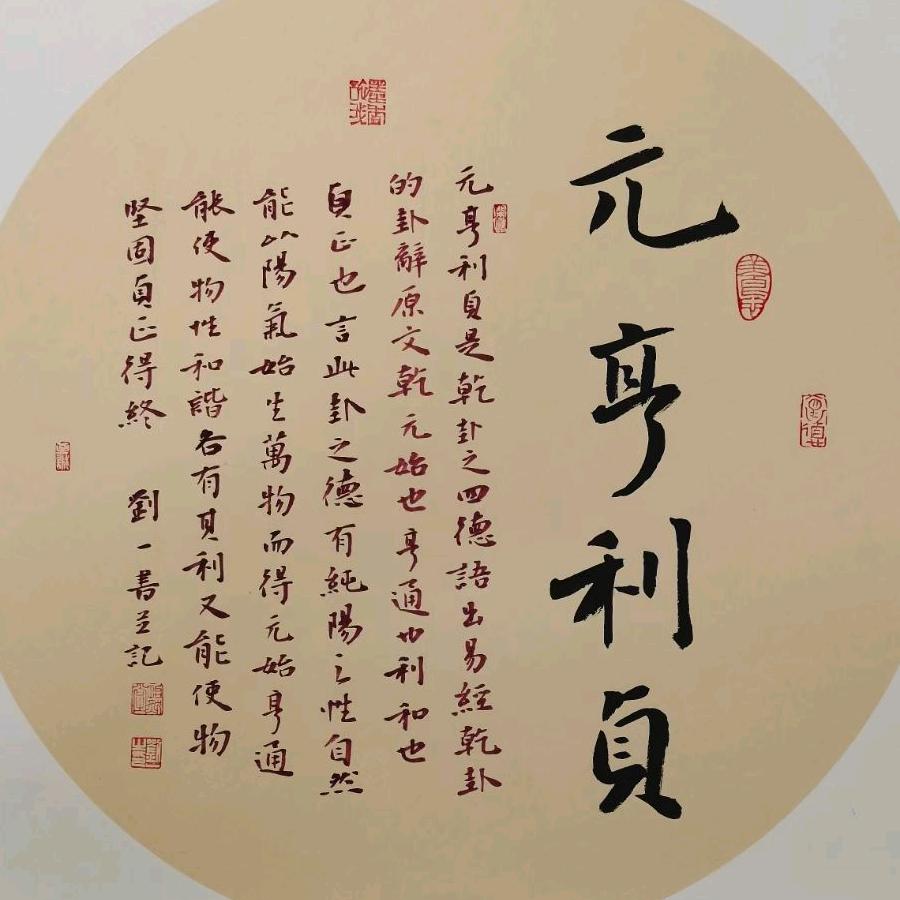 元亨利貞
元亨利貞是乾卦之四德語出易經乾卦
的卦辭原文乾元始也亨通也利和也
貞正也言此卦之德有純陽之性自然
能以陽氣始生萬物而得元始亨通
能使物性和諧各有其利又能使物
堅固貞正得終 劉一書並記